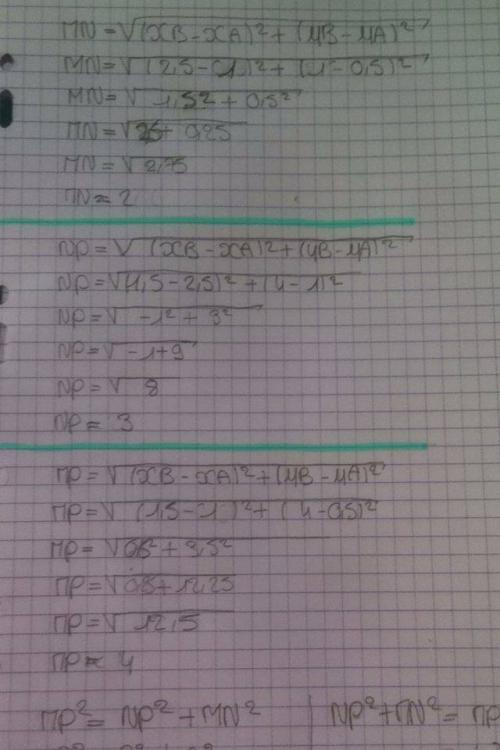 MN = √(xB - xA)² + (yB - yA)²
MN = √(2,5 - 1)² + (1 - 0,5)²
MN = √1,5² + 0,5²
MN = √ + 0,25
MN = √2,75
MN ≈ 2
NP = √(xB - xA)² + (yB - yA)²
NP = √(1,5 - 2,5)² + (4 - 1)²
NP = √-1² + 3²
NP = √-1 + 9
NP = √8
NP ≈ 3
MP = √(xB - xA)² + (yB - yA)²
MP = √(1,5 - 1)² + (4 - 0,5)²
MP = √0,5² + 3,5²
MP = √ + 12,25
MP = √12,5
MP ≈ 4
MP² = NP² + MN² | NP² + MN² = MP